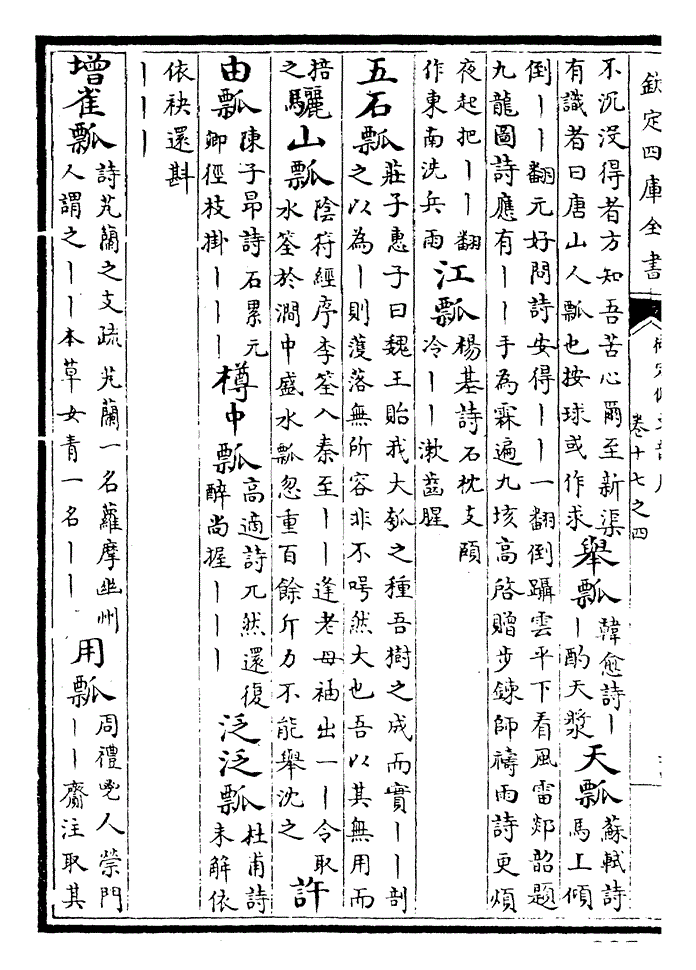 欽定四庫全書
卷十七之四
不沉没得者方知吾苦心爾至新渠
有識者曰唐山人瓢也按球或作求
舉瓢
韓愈詩丨
丨酌天漿
天瓢
蘇軾詩
馬上傾
倒丨丨翻元好問詩安得丨丨一翻倒躡雲平下看風雷郯韶題
九龍圖詩應有丨丨手為霖遍九垓高啓贈步鍊師禱雨詩更煩
夜起把丨丨翻
作東南洗兵雨
江瓢
楊基詩石枕支頤
冷丨丨漱齒腥
五石瓢
莊子惠子曰魏王貽我大瓠之種吾樹之成而實丨丨剖
之以為丨則濩落無所容非不呺然大也吾以其無用而
掊
之
驪山瓢
陰符經序李筌入秦至丨丨逢老母袖出一丨令取
水筌於澗中盛水瓢忽重百餘斤力不能舉沈之
許
由瓢
陳子昂詩石累元
卿徑枝掛丨丨丨
樽中瓢
高適詩兀然還復
醉尚握丨丨丨
泛泛瓢
杜甫詩
未解依
依袂還斟
丨丨丨
增雀瓢
詩芄蘭之支疏芄蘭一名蘿摩幽州
人謂之丨丨本草女青一名丨丨
用瓢
周禮鬯人禜門
丨丨齎注取其